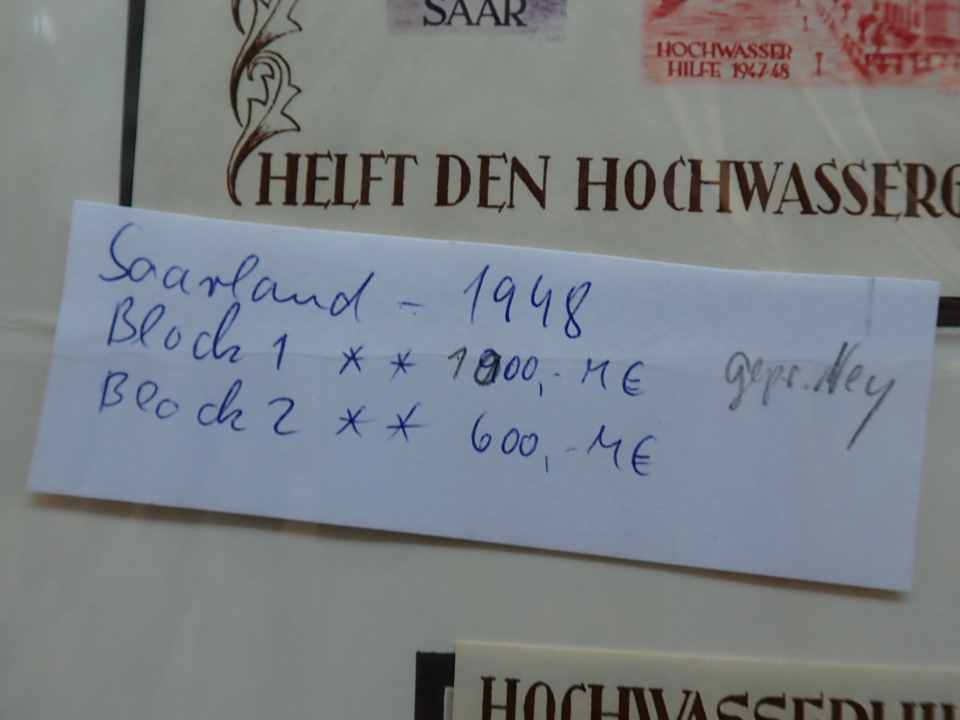 SAAR
HOCHWASSER
HILFE 1947-48
HELFT DEN HOCHWASSERG
Saarland - 1948
Block 1 ** 1000,- M€ gepr. Ney
Block 2 ** 600,- M€
HOCHWASSERHI